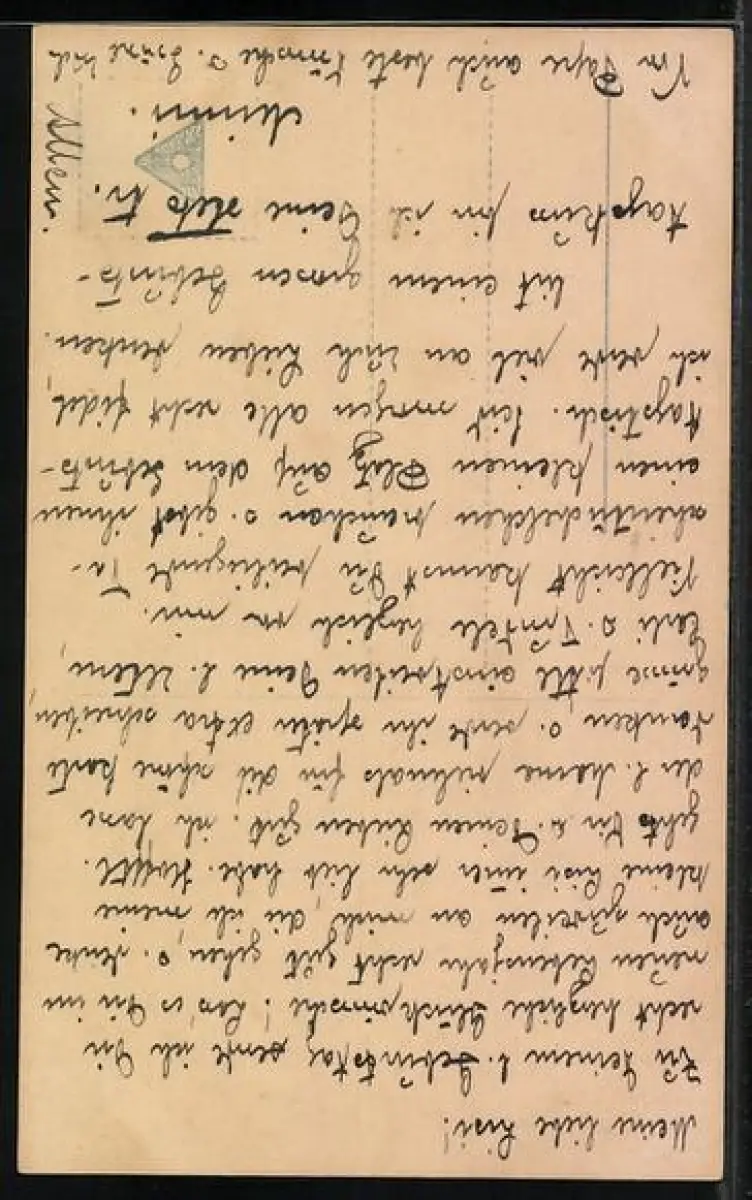 Meine liebe Lisi!
Zu Deinem l. Geburtstag sende ich Dir
recht herzliche Glückwünsche! Lass es Dir im
neuen Lebensjahr recht gut gehen, u. denke
auch zuweilen an mich, die ich meine
kleine Lisi immer sehr lieb habe. Hofftl.
gehts Dir u. Deinen Lieben gut. Ich lasse
der l. Mama vielmals für die schöne Karte
danken u. werde ihr später extra schreiben,
grüsse bitte einstweilen Deine l. Eltern,
herzlich von mir.
Vielleicht kannst Du beiliegende
brauchen u. gibst ihnen
einen kleinen Platz auf dem Geburts-
tagstisch. Seid morgen alle recht fidel,
ich werde viel an Euch Lieben denken.
Mit einem grossen Geburts-
tagskuss bin ich Deine stets tr.
Mimi.
Von Papa auch beste Wünsche u. Grüsse Euch
Allen.